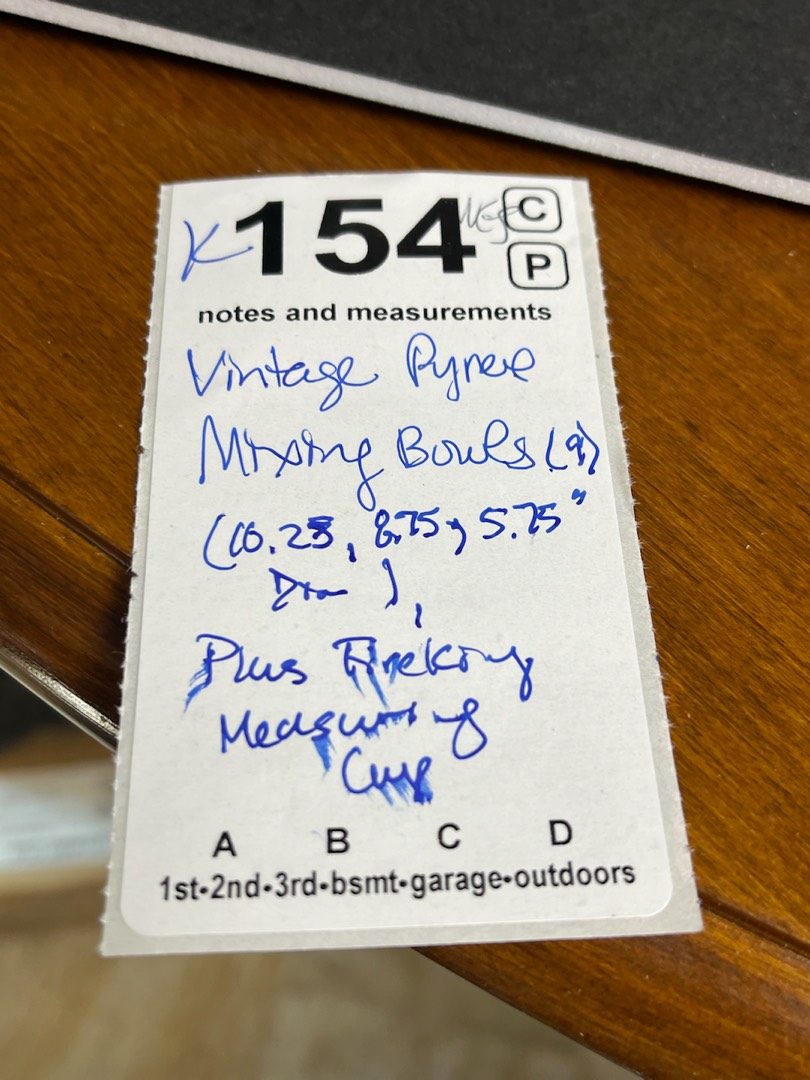 K154 C
P
notes and measurements
Vintage Pyrex
Mixing Bowls (9)
(10.25, 8.75, 5.75"
Dia),
Plus Fireking
Measuring
Cup
A B C D
1st•2nd•3rd•bsmt•garage•outdoors